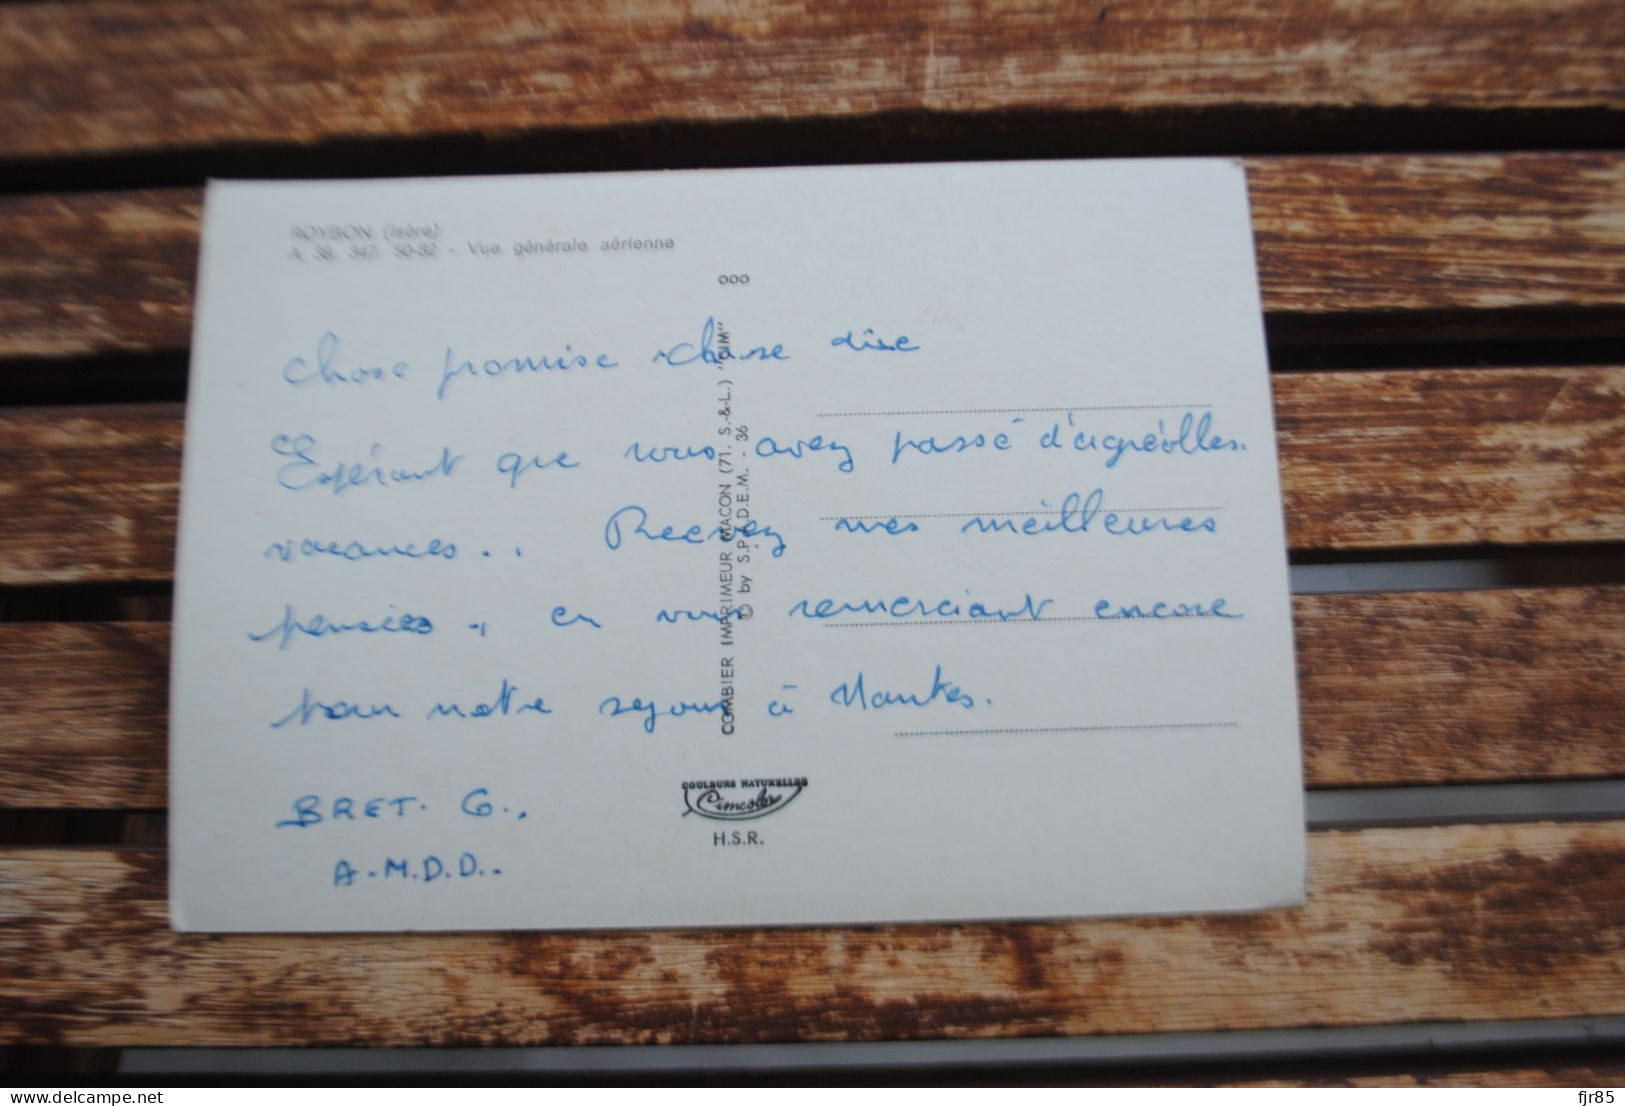 ROYBON (Isère)
A. 38. 347. 50-82 - Vue générale aérienne
ooo
Chose promise chose due
Espérant que vous avez passé d'agréolles.
vacances.. Recevez mes meilleures
pensées., en vous remerciant encore
pour notre sejour à Nantes.
BRET. G.,
A-M.D.D..
COMBIER IMPRIMEUR MACON (71. S.-&-L.) "CIM"
© by S.P.A.D.E.M. - 36
COULEURS NATURELLES
Cimcolor
H.S.R.
delcampe.net
fjr85